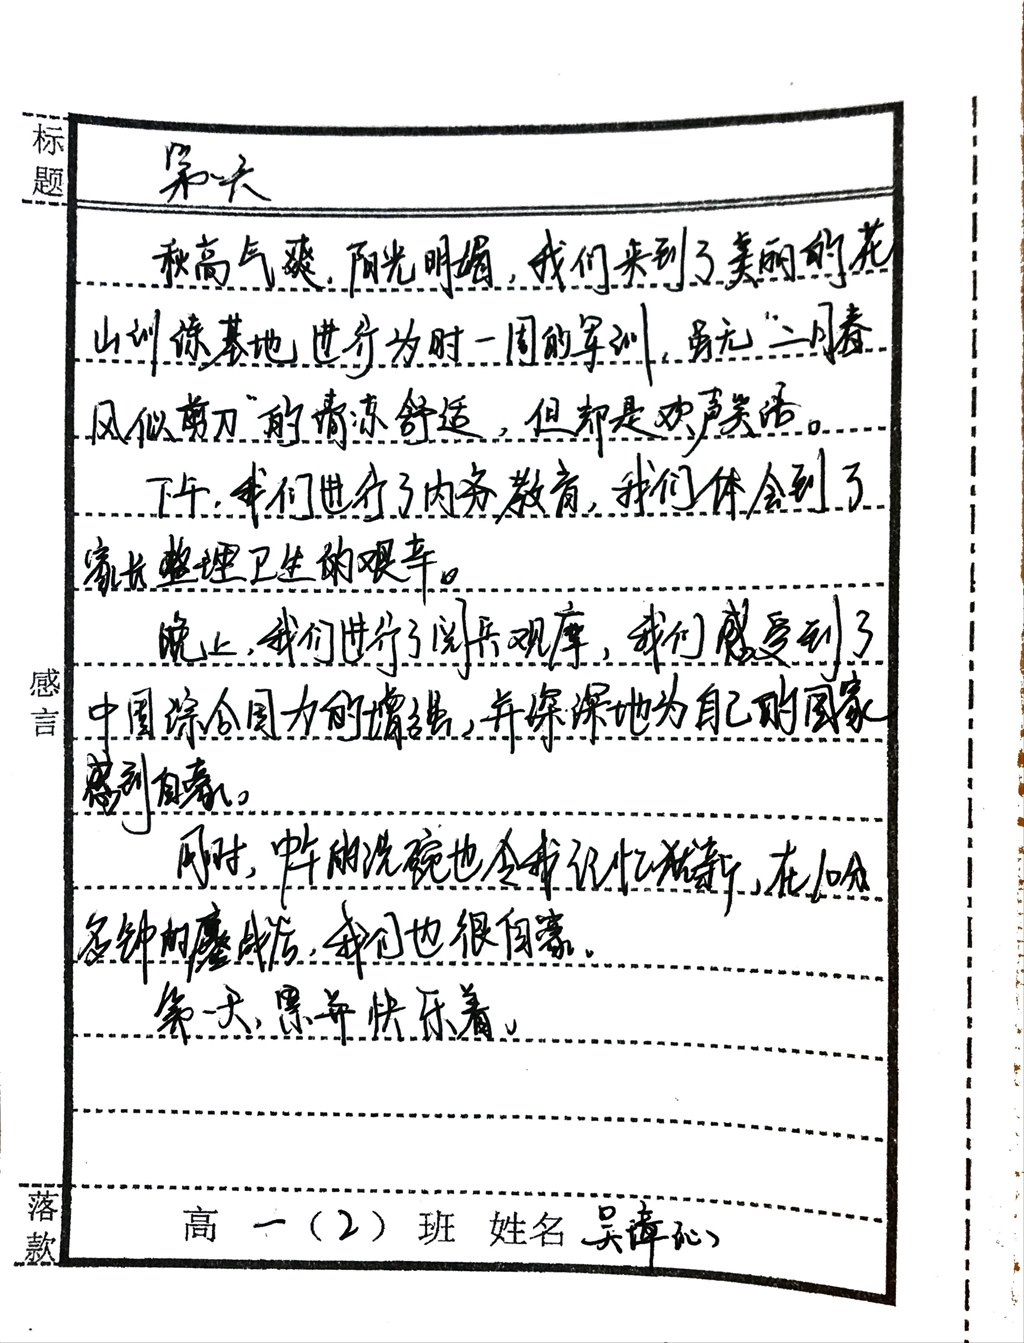 标题
第一天
秋高气爽，阳光明媚，我们来到了美丽的花
山训练基地，进行为时一周的军训，虽无“二月春
风似剪刀”的清凉舒适，但却是欢声笑语。
下午，我们进行了内务教育，我们体会到了
家长整理卫生的艰辛。
晚上，我们进行了阅兵观摩，我们感受到了
中国综合国力的增强，并深深地为自己的国家
感到自豪。
同时，中午的洗碗也令我记忆犹新，在10分
多钟的鏖战后，我们也很自豪。
第一天，累并快乐着。
感言
落款
高一（2）班 姓名 吴